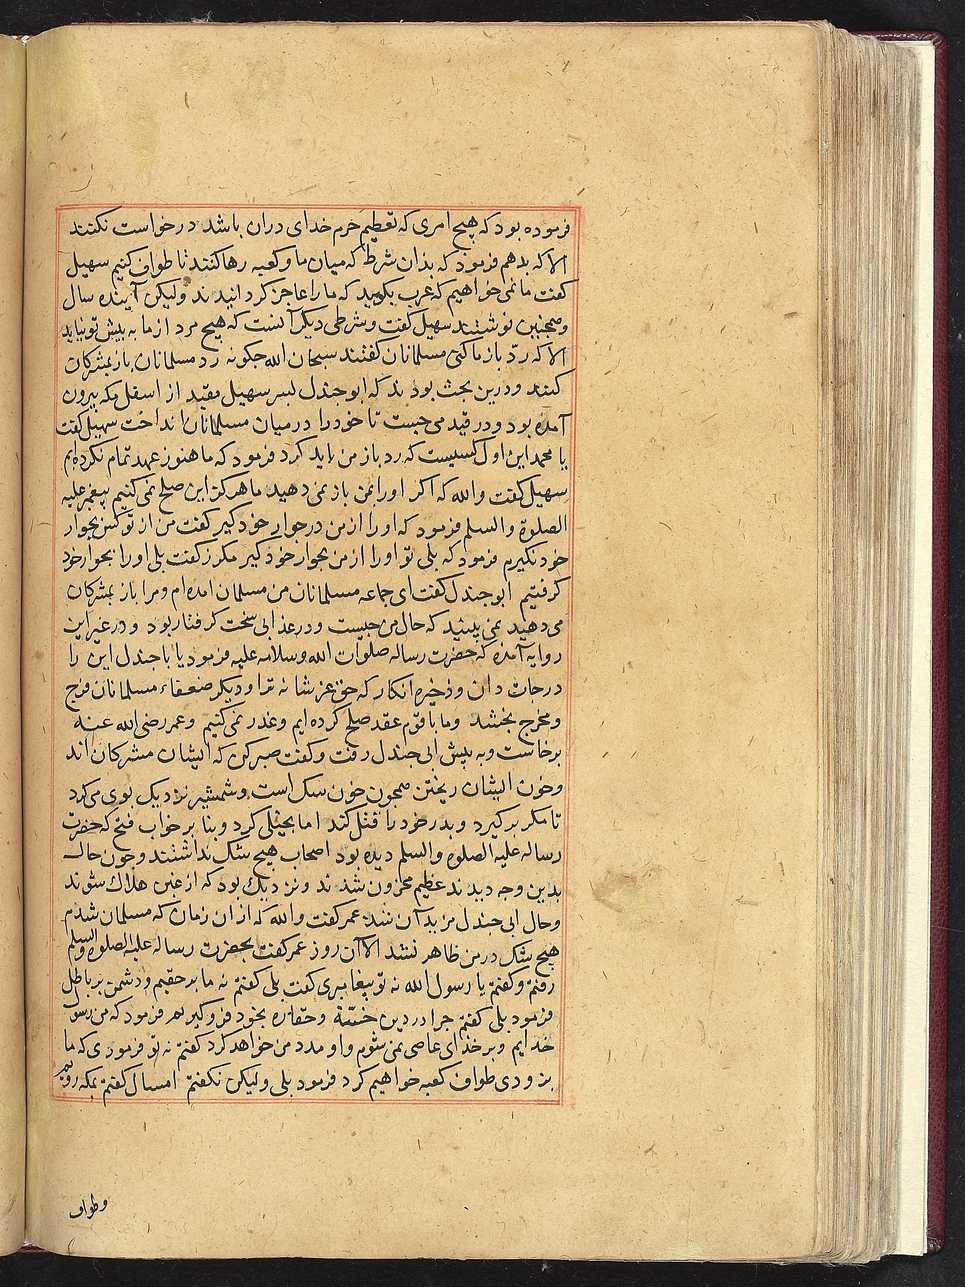 فرموده بود که هیچ امری که تعظیم حرم خدای دران باشد درخواست نکنند
الا که بدهم فرمود که بذان شرط که میان ما و کعبه رها کنند تا طواف کنیم سهیل
کفت ما نمی خواهیم که عرب بکویند که ما را عاجز کردانیدند ولیکن آینده سال
وهمچنین نوشتند سهیل کفت وشرطی دیکر آنست که هیچ مرد از ما به پیش تو نیاید
الا که ردّ باز ما کنی مسلمانان کفتند سبحان الله جکونه رد مسلمانان باز مشرکان
کنند ودرین بحث بودند که ابوجندل بسر سهیل مقید از اسفل مکه بیرون
آمده بود ودر قید می جست تا خود را درمیان مسلمانان انداخت سهیل کفت
یا محمد این اول کسیست که رد باز من باید کرد فرمود که ما هنوز عهد تمام نکرده ایم
سهیل کفت والله که اکر اورا بمن باز نمی دهید ما هرکز این صلح نمی کنیم پیغمبر علیه
الصلوة والسلم فرمود که اورا از من درجوار خود کیر کفت من از تو کس بجوار
خود نکیرم فرمود که بلی تو اورا از من بجوار خود کیر مکرز کفت بلی اورا بجوار خود
کرفتیم ابوجندل کفت ای جماعه مسلمانان من مسلمان امده ام ومرا باز بمشرکان
می دهید نمی بینید که حال من جیست ودر عذابی سخت کرفتار بود ودر غیر این
روایه آمده که حضرت رساله صلوات الله وسلامه علیه فرمود یا با جندل این را
درجات دان وذخیره انکار که حق عز شانه ترا ودیکر ضعفاء مسلمانان فرج
ومخرج بخشد وما با قوم عقد صلح کرده ایم وغدر نمی کنیم وعمر رضی الله عنه
برخاست وبه پیش ابی جندل رفت وکفت صبر کن که ایشان مشرکان اند
وخون ایشان ریختن همجون خون سک است وشمشیر نزدیک بوی می کرد
تا مکر برکیرد وبدر خود را قتل کند اما بخیلی کرد وبنا بر خواب فتح که حضرت
رساله علیه الصلوه والسلم دیده بود اصحاب هیچ شک نداشتند وجون حال
بدین وجه دیدند عظیم محزون شدند ونزدیک بود که از غبن هلاک شوند
وحال ابی جندل مزید آن شد عمر کفت والله که از ان زمان که مسلمان شدم
هیچ شک در من ظاهر نشد الا آن روز عمر کفت بحضرت رساله علیه الصلوه والسلم
رفتم وکفتم یا رسول الله نه تو پیغامبری کفت بلی کفتم نه ما بر حقیم ودشمن بر باطل
فرمود بلی کفتم جرا در دین خسّة وحقاره بخود فرو کیریم فرمود که من رسول
خدایم وبر خدای عاصی نمی شوم واو مدد من خواهد کرد کفتم نه تو فرمودی که ما
بزودی طواف کعبه خواهیم کرد فرمود بلی ولیکن نکفتم امسال کفتم بمکه رویم
وطواف